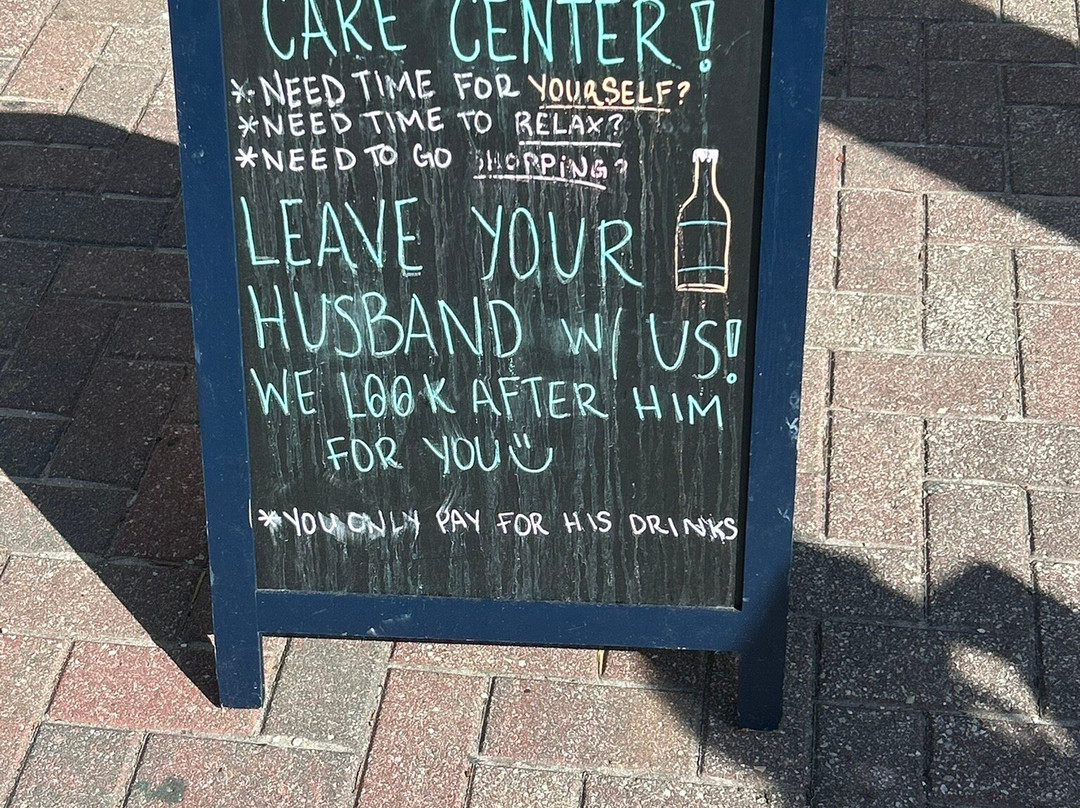 CARE CENTER!
* NEED TIME FOR YOURSELF?
* NEED TIME TO RELAX?
* NEED TO GO SHOPPING?
LEAVE YOUR
HUSBAND W/ US!
WE LOOK AFTER HIM
FOR YOU
* YOU ONLY PAY FOR HIS DRINKS